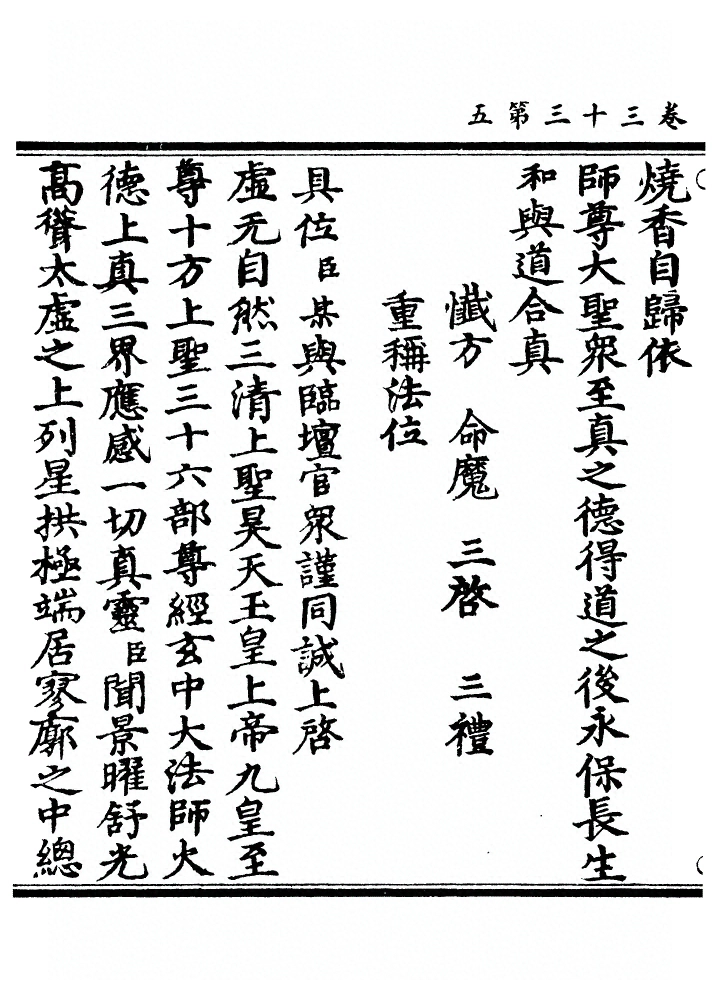 卷三十三第五
燒香自歸依
師尊大聖衆至真之德得道之後永保長生
和與道合真
懺方　命魔　三啓　三禮
重稱法位
具位臣某與臨壇官衆謹同誠上啓
虛无自然三清上聖昊天玉皇上帝九皇至
尊十方上聖三十六部尊經玄中大法師火
德上真三界應感一切真靈臣聞景曜舒光
高聳太虛之上列星拱極端居寥廓之中總